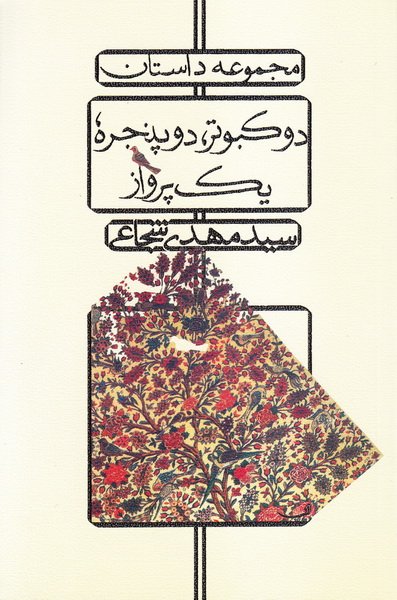 مجموعه داستان
دو کبوتر، دو پنجره،
یک پرواز
سید مهدی شجاعی